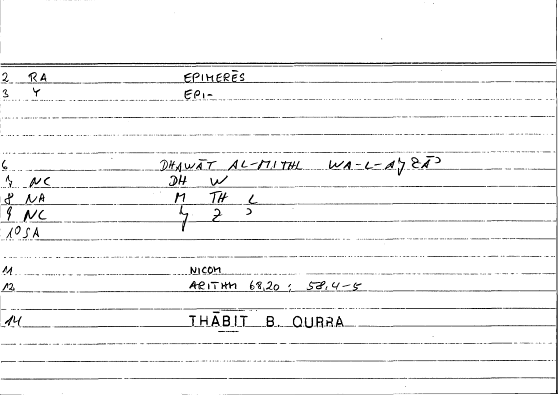 2 RA EPIMERĒS
3 Y EPI-
6 DHAWĀT AL-MITHL
7 NC DH W
8 NA M TH L
9 NC
10 SA
11 NICOM
12 ARITHM 68,20 ; 58,4-5
14 THĀBIT B. QURRA